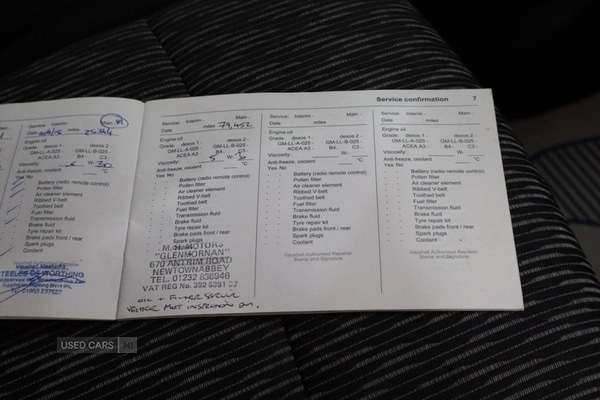 Service confirmation 7
Service: Interim - Main -
Date miles 25344
Engine oil
Grade: dexos 1 - dexos 2 -
GM-LL-A-025 - GM-LL-B-025 -
ACEA A3 - B4 - C3 -
Viscosity W- 30
Anti-freeze, coolant °C
Yes No
Battery (radio remote control)
Pollen filter
Air cleaner element
Ribbed V-belt
Toothed belt
Fuel filter
Transmission fluid
Brake fluid
Tyre repair kit
Brake pads front / rear
Spark plugs
Coolant
STEELES OF WORTHING
Service: Interim - Main -
Date miles 79,452
Engine oil
Grade: dexos 1 - dexos 2 -
GM-LL-A-025 - GM-LL-B-025 -
ACEA A3 - B4 - C3 -
Viscosity 5 W- 30
Anti-freeze, coolant °C
Yes No
Battery (radio remote control)
Pollen filter
Air cleaner element
Ribbed V-belt
Toothed belt
Fuel filter
Transmission fluid
Brake fluid
Tyre repair kit
Brake pads front / rear
Spark plugs
M.H. MOTORS
"GLENMORNAN"
670 ANTRIM ROAD
NEWTOWNABBEY
TEL. 01232 836946
VAT REG No.
OIL + FILTER SERVICE
VEHICLE MOT INSPECTION
Service: Interim - Main -
Date miles
Engine oil
Grade: dexos 1 - dexos 2 -
GM-LL-A-025 - GM-LL-B-025 -
ACEA A3 - B4 - C3 -
Viscosity W-
Anti-freeze, coolant °C
Yes No
Battery (radio remote control)
Pollen filter
Air cleaner element
Ribbed V-belt
Toothed belt
Fuel filter
Transmission fluid
Brake fluid
Tyre repair kit
Brake pads front / rear
Spark plugs
Coolant
Vauxhall Authorised Repairer
Stamp and Signature
Service: Interim - Main -
Date miles
Engine oil
Grade: dexos 1 - dexos 2 -
GM-LL-A-025 - GM-LL-B-025 -
ACEA A3 - B4 - C3 -
Viscosity W-
Anti-freeze, coolant °C
Yes No
Battery (radio remote control)
Pollen filter
Air cleaner element
Ribbed V-belt
Toothed belt
Fuel filter
Transmission fluid
Brake fluid
Tyre repair kit
Brake pads front / rear
Spark plugs
Coolant
Vauxhall Authorised Repairer
Stamp and Signature
USED CARS .NI